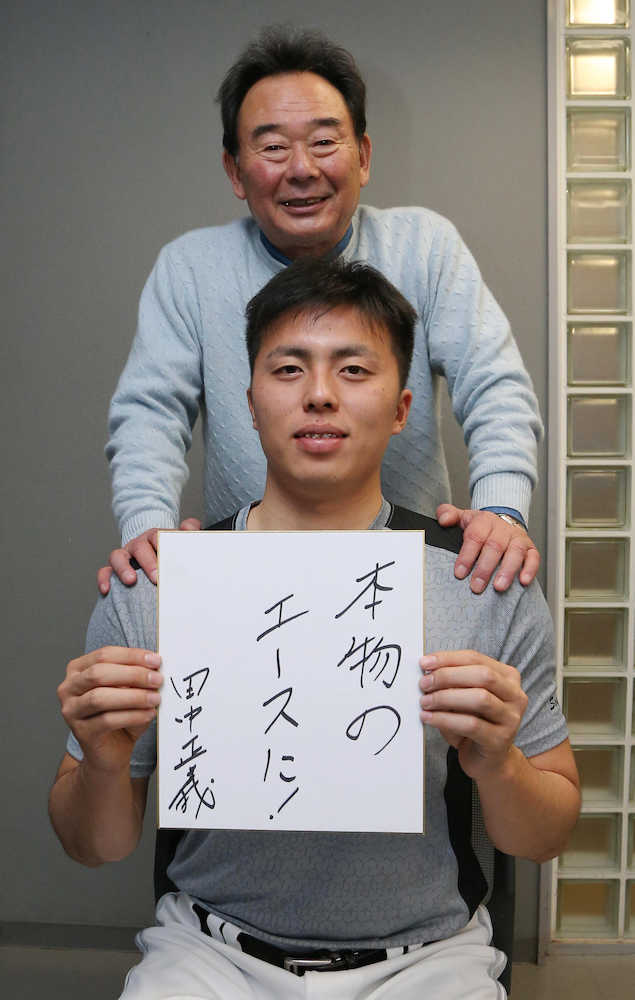 本物の
エースに!
田中正義